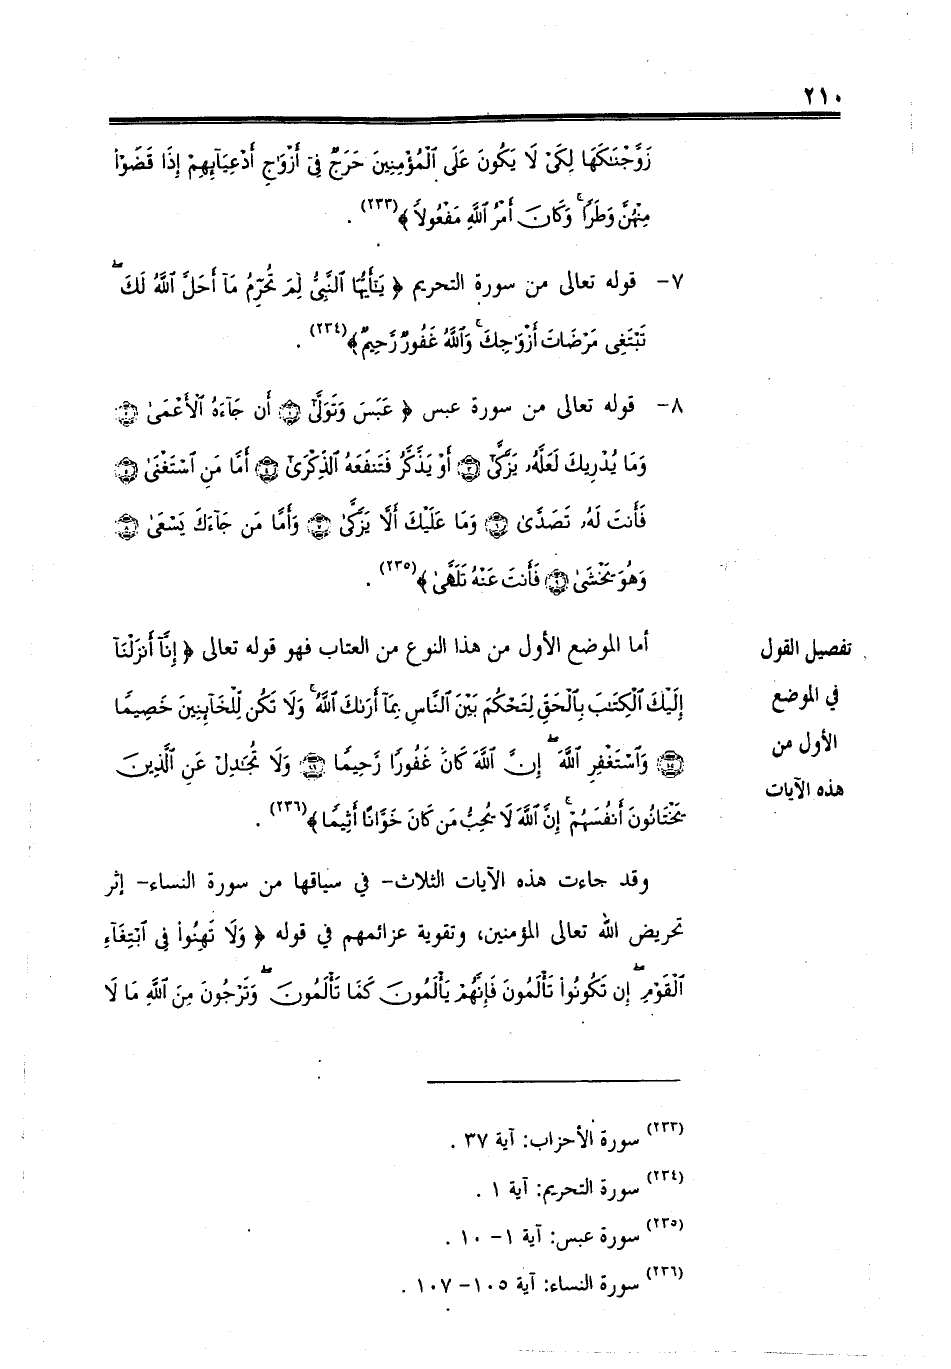 ٢١٠
زَوَّجْنَٰكَهَا لِكَىْ لَا يَكُونَ عَلَى ٱلْمُؤْمِنِينَ حَرَجٌ فِىٓ أَزْوَٰجِ أَدْعِيَآئِهِمْ إِذَا قَضَوْا۟
مِنْهُنَّ وَطَرًا ۚ وَكَانَ أَمْرُ ٱللَّهِ مَفْعُولًا ﴾(٢٣٣) .
٧- قوله تعالى من سورة التحريم ﴿ يَٰٓأَيُّهَا ٱلنَّبِىُّ لِمَ تُحَرِّمُ مَآ أَحَلَّ ٱللَّهُ لَكَ ۖ
تَبْتَغِى مَرْضَاتَ أَزْوَٰجِكَ ۚ وَٱللَّهُ غَفُورٌ رَّحِيمٌ ﴾(٢٣٤) .
٨- قوله تعالى من سورة عبس ﴿ عَبَسَ وَتَوَلَّىٰٓ ۝١ أَن جَآءَهُ ٱلْأَعْمَىٰ ۝٢
وَمَا يُدْرِيكَ لَعَلَّهُۥ يَزَّكَّىٰٓ ۝٣ أَوْ يَذَّكَّرُ فَتَنفَعَهُ ٱلذِّكْرَىٰٓ ۝٤ أَمَّا مَنِ ٱسْتَغْنَىٰ ۝٥
فَأَنتَ لَهُۥ تَصَدَّىٰ ۝٦ وَمَا عَلَيْكَ أَلَّا يَزَّكَّىٰ ۝٧ وَأَمَّا مَن جَآءَكَ يَسْعَىٰ ۝٨
وَهُوَ يَخْشَىٰ ۝٩ فَأَنتَ عَنْهُ تَلَهَّىٰ ﴾(٢٣٥) .
تفصيل القول
في الموضع
الأول من
هذه الآيات
أما الموضع الأول من هذا النوع من العتاب فهو قوله تعالى ﴿ إِنَّآ أَنزَلْنَآ
إِلَيْكَ ٱلْكِتَٰبَ بِٱلْحَقِّ لِتَحْكُمَ بَيْنَ ٱلنَّاسِ بِمَآ أَرَىٰكَ ٱللَّهُ ۚ وَلَا تَكُن لِّلْخَآئِنِينَ خَصِيمًا
۝١٠٥ وَٱسْتَغْفِرِ ٱللَّهَ ۖ إِنَّ ٱللَّهَ كَانَ غَفُورًا رَّحِيمًا ۝١٠٦ وَلَا تُجَٰدِلْ عَنِ ٱلَّذِينَ
يَخْتَانُونَ أَنفُسَهُمْ ۚ إِنَّ ٱللَّهَ لَا يُحِبُّ مَن كَانَ خَوَّانًا أَثِيمًا ﴾(٢٣٦) .
وقد جاءت هذه الآيات الثلاث- في سياقها من سورة النساء- إثر
تحريض الله تعالى المؤمنين، وتقوية عزائمهم في قوله ﴿ وَلَا تَهِنُوا۟ فِى ٱبْتِغَآءِ
ٱلْقَوْمِ ۖ إِن تَكُونُوا۟ تَأْلَمُونَ فَإِنَّهُمْ يَأْلَمُونَ كَمَا تَأْلَمُونَ ۖ وَتَرْجُونَ مِنَ ٱللَّهِ مَا لَا
(٢٣٣) سورة الأحزاب: آية ٣٧ .
(٢٣٤) سورة التحريم: آية ١ .
(٢٣٥) سورة عبس: آية ١- ١٠ .
(٢٣٦) سورة النساء: آية ١٠٥- ١٠٧ .